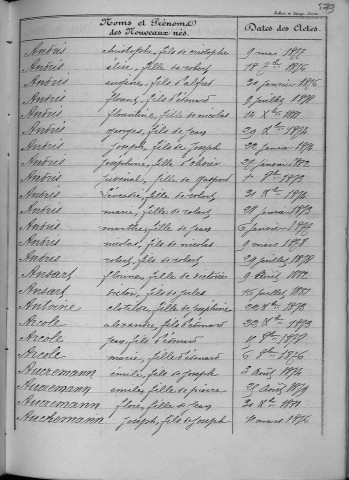 579
Noms et Prénoms
des Nouveaux nés.
Dates des Actes.
Andris christophe, fils de christophe 9 mai
Andris élise, fille de robert 18 7bre 1876
Andris eugène, fils d'alfred 20 janvier 1876
Andris florent, fils d'édouard 9 juillet 1878
Andris florentine, fille de nicolas 14 Xbre 1881
Andris georges, fils de jean 29 Xbre 1874
Andris joseph, fils de joseph
Andris joséphine, fille d'olivier 27 janvier 1882
Andris juvénal, fille de gaspard 1er 8bre 1873
Andris Léocadie, fille de robert 21 Xbre 1874
Andris marie, fille de robert 28 janvier 1873
Andris marthe, fille de jean 6 janvier 1877
Andris nicolas, fils de nicolas 9 mars 1878
Andris robert, fils de robert 29 juillet 1878
Ansart florine, fille de victorien 9 Avril 1882
Ansart victor, fils de jules 15 juillet 1881
Antoine clotilde, fille de joséphine 20 Xbre 1873
Arcole alexandre, fils d'édouard 22 Xbre 1873
Arcole jean, fils d'édouard 11 8bre 1878
Arcole marie, fille d'édouard 6 8bre 1876
Aucremann émile, fils de joseph 3 Août 1874
Aucremann émile, fille de pierre 21 Août 1879
Aucremann flore, fille de jean 20 Xbre 1881
Auckemann joseph, fils de joseph 11 mars 1876